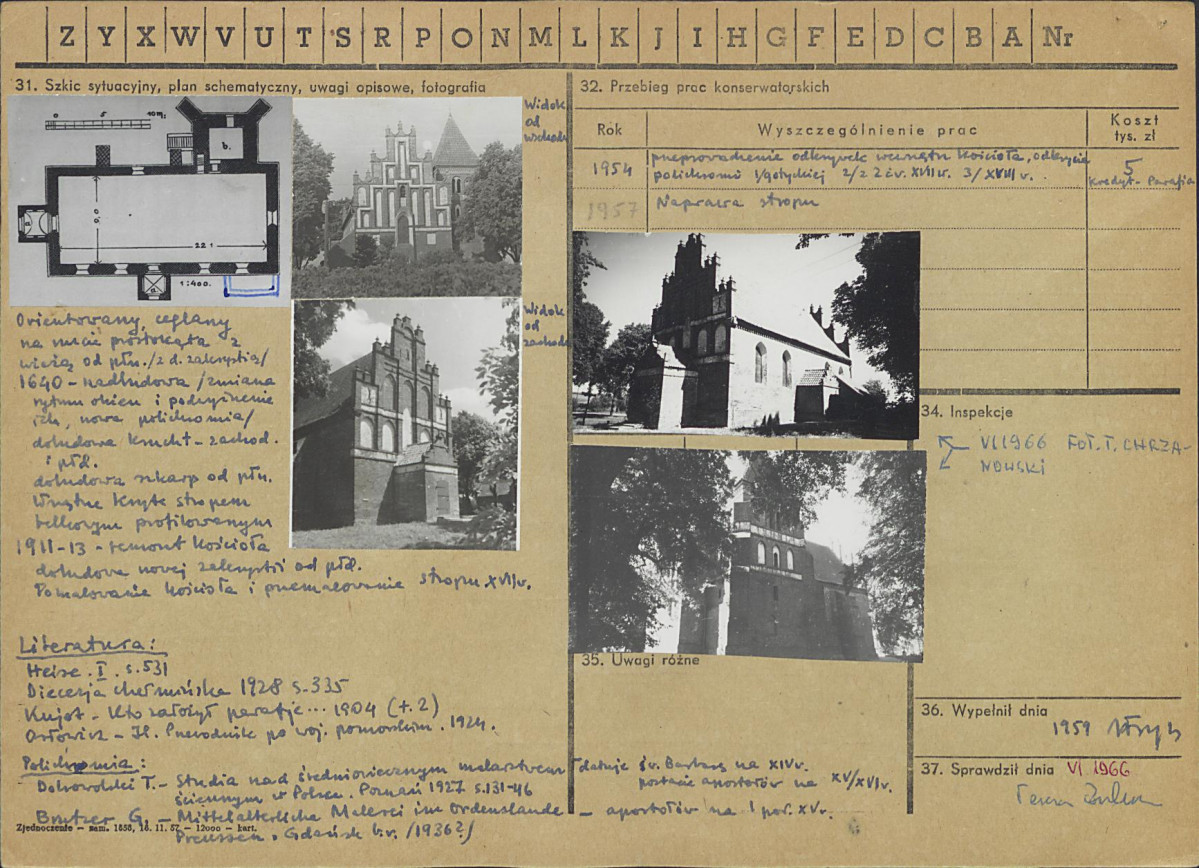 Z Y X W V U T S R P O N M L K J I H G F E D C B A Nr
31. Szkic sytuacyjny, plan schematyczny, uwagi opisowe, fotografia
0 5 10 m.
b.
22 1
1:400.
a
Widok
od
wschodu
Widok
od
zachodu
Orientowany, ceglany
na rzucie prostokąta z
wieżą od płn. /z d. zakrystią/
1640 - nadbudowa /zmiana
rytmu okien i podwyższenie
ich, nowa polichromia/
dobudowa krucht - zachod.
i płd.
dobudowa szkarp od płn.
Wnętrze kryte stropem
belkowym profilowanym
1911-13 - remont kościoła
dobudowa nowej zakrystii od płd.
Pomalowanie kościoła i przemalowanie stropu XVII w.
Literatura:
Heise. I. s. 531
Diecezja chełmińska 1928 s. 335
Kujot - Kto założył parafje... 1904 (t. 2)
Orłowicz - Il. Przewodnik po woj. pomorskim. 1924.
Polichromia:
Dobrowolski T. - Studia nad średniowiecznym malarstwem
ściennym w Polsce. Poznań 1927 s. 131-46
datuje św. Barbarę na XIV w.
postacie apostołów na XV/XVI w.
Brutzer G. - Mittelalterliche Malerei im Ordenslande
Preussen. Gdańsk b.r. /1936?/
- apostołów na 1 poł. XV w.
Zjednoczenie — zam. 1858, 16. 11. 57 — 12000 — kart.
32. Przebieg prac konserwatorskich
Rok Wyszczególnienie prac Koszt
tys. zł
1954 przeprowadzenie odkrywek wewnątrz kościoła, odkrycie
polichromii 1/gotyckiej 2/z 2 ćw. XVII w. 3/XVIII w.
5
Kredyt - Parafia
1957 Naprawa stropu
34. Inspekcje
VI 1966 FOT. T. CHRZA-
NOWSKI
35. Uwagi różne
36. Wypełnił dnia
1959
37. Sprawdził dnia VI 1966
Teresa